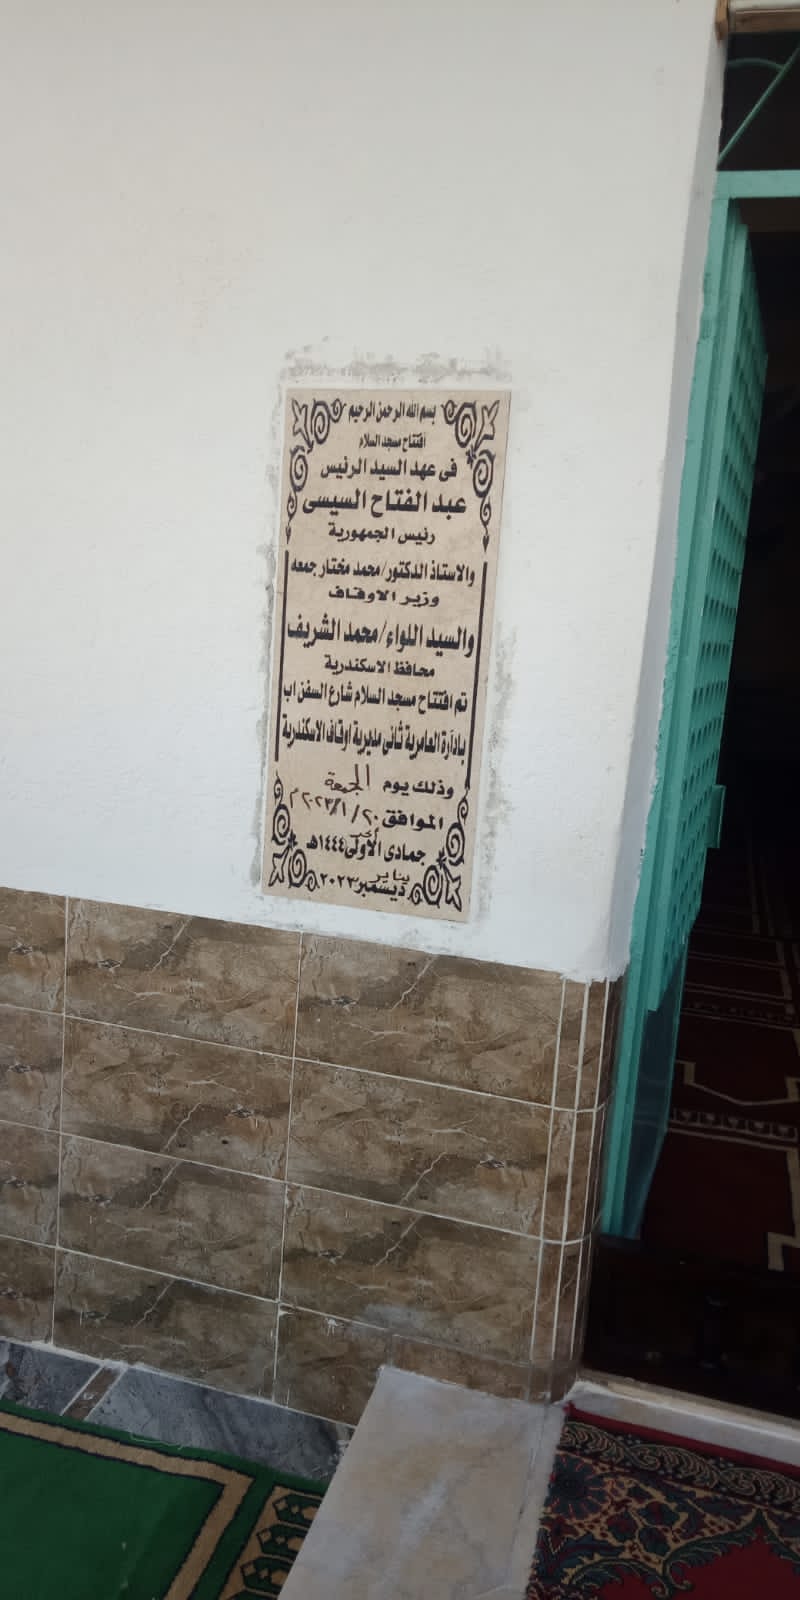 بسم الله الرحمن الرحيم
افتتاح مسجد السلام
فى عهد السيد الرئيس
عبد الفتاح السيسى
رئيس الجمهورية
والاستاذ الدكتور/محمد مختار جمعه
وزير الاوقاف
والسيد اللواء/محمد الشريف
محافظ الاسكندرية
تم افتتاح مسجد السلام شارع السفن اب
بادارة العامرية ثانى مديرية اوقاف الاسكندرية
وذلك يوم الجمعة
الموافق ٢٠/١/٢٠٢٣م
جمادى الاولى ١٤٤٤هـ
يناير
ديسمبر ٢٠٢٣